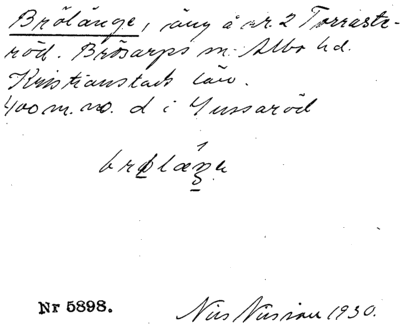 Brölänge, äng å nr 2 Torrastr-
röd. Brösarps sn. Albo hd.
Kristianstads län.
400 m. no. d i Yussaröd
brølæŋə
Nr 5898. Nils Nilsson 1930.